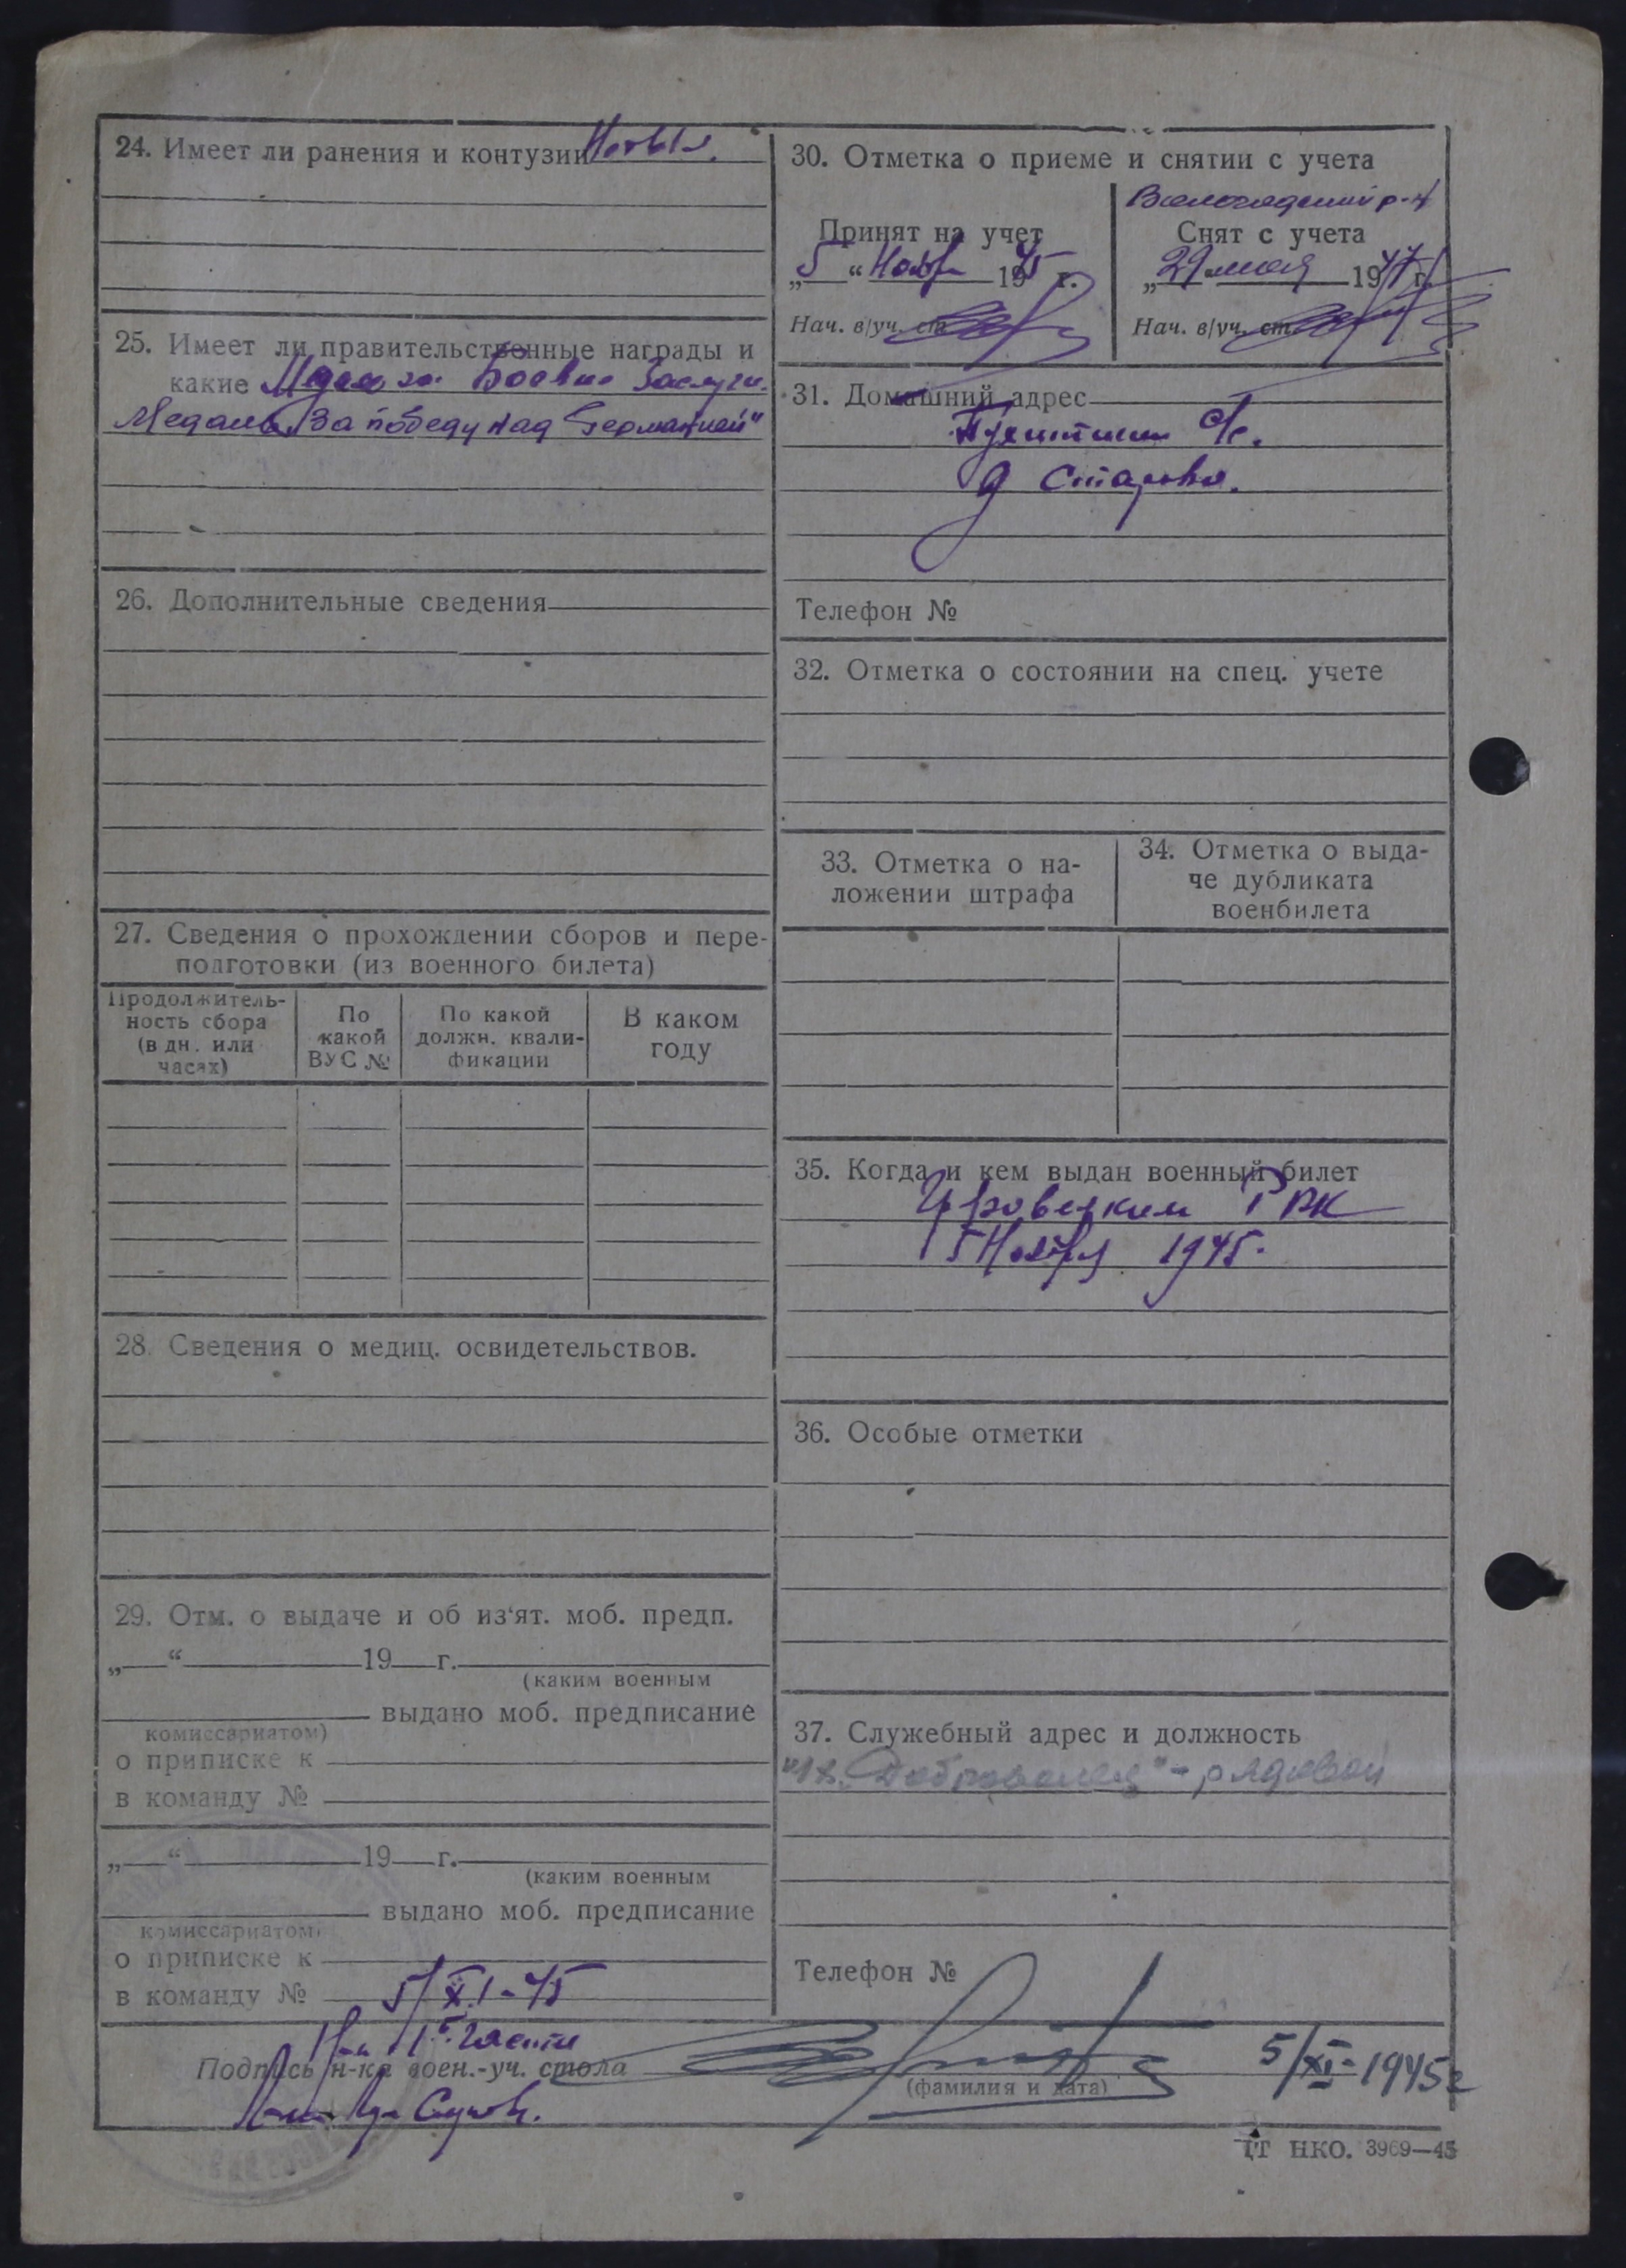 24. Имеет ли ранения и контузии
25. Имеет ли правительственные награды и
какие Медаль за Боевые Заслуги.
Медаль „За победу над Германией"
26. Дополнительные сведения
27. Сведения о прохождении сборов и пере-
подготовки (из военного билета)
Продолжитель-
ность сбора
(в дн. или
часах)
По
какой
ВУС №
По какой
должн. квали-
фикации
В каком
году
28. Сведения о медиц. освидетельствов.
29. Отм. о выдаче и об из‘ят. моб. предп.
„ “ 19 г.
(каким военным
выдано моб. предписание
комиссариатом)
о приписке к
в команду №
„ “ 19 г.
(каким военным
выдано моб. предписание
комиссариатом)
о приписке к
в команду №
5/XI-45
30. Отметка о приеме и снятии с учета
р-н
Принят на учет
„5 “ Ноябр 1945 г.
Нач. в/уч. ст.
Снят с учета
„29 мая 1947 г.
Нач. в/уч. ст.
31. Домашний адрес
с/с.
д Старово.
Телефон №
32. Отметка о состоянии на спец. учете
33. Отметка о на-
ложении штрафа
34. Отметка о выда-
че дубликата
военбилета
35. Когда и кем выдан военный билет
РВК
5 Ноября 1945.
36. Особые отметки
37. Служебный адрес и должность
"Доброволец" - рядовой
Телефон №
Нач 1й части
Подпись н-ка воен.-уч. стола
(фамилия и дата)
5/XI-1945г
1Т НКО. 3969—45